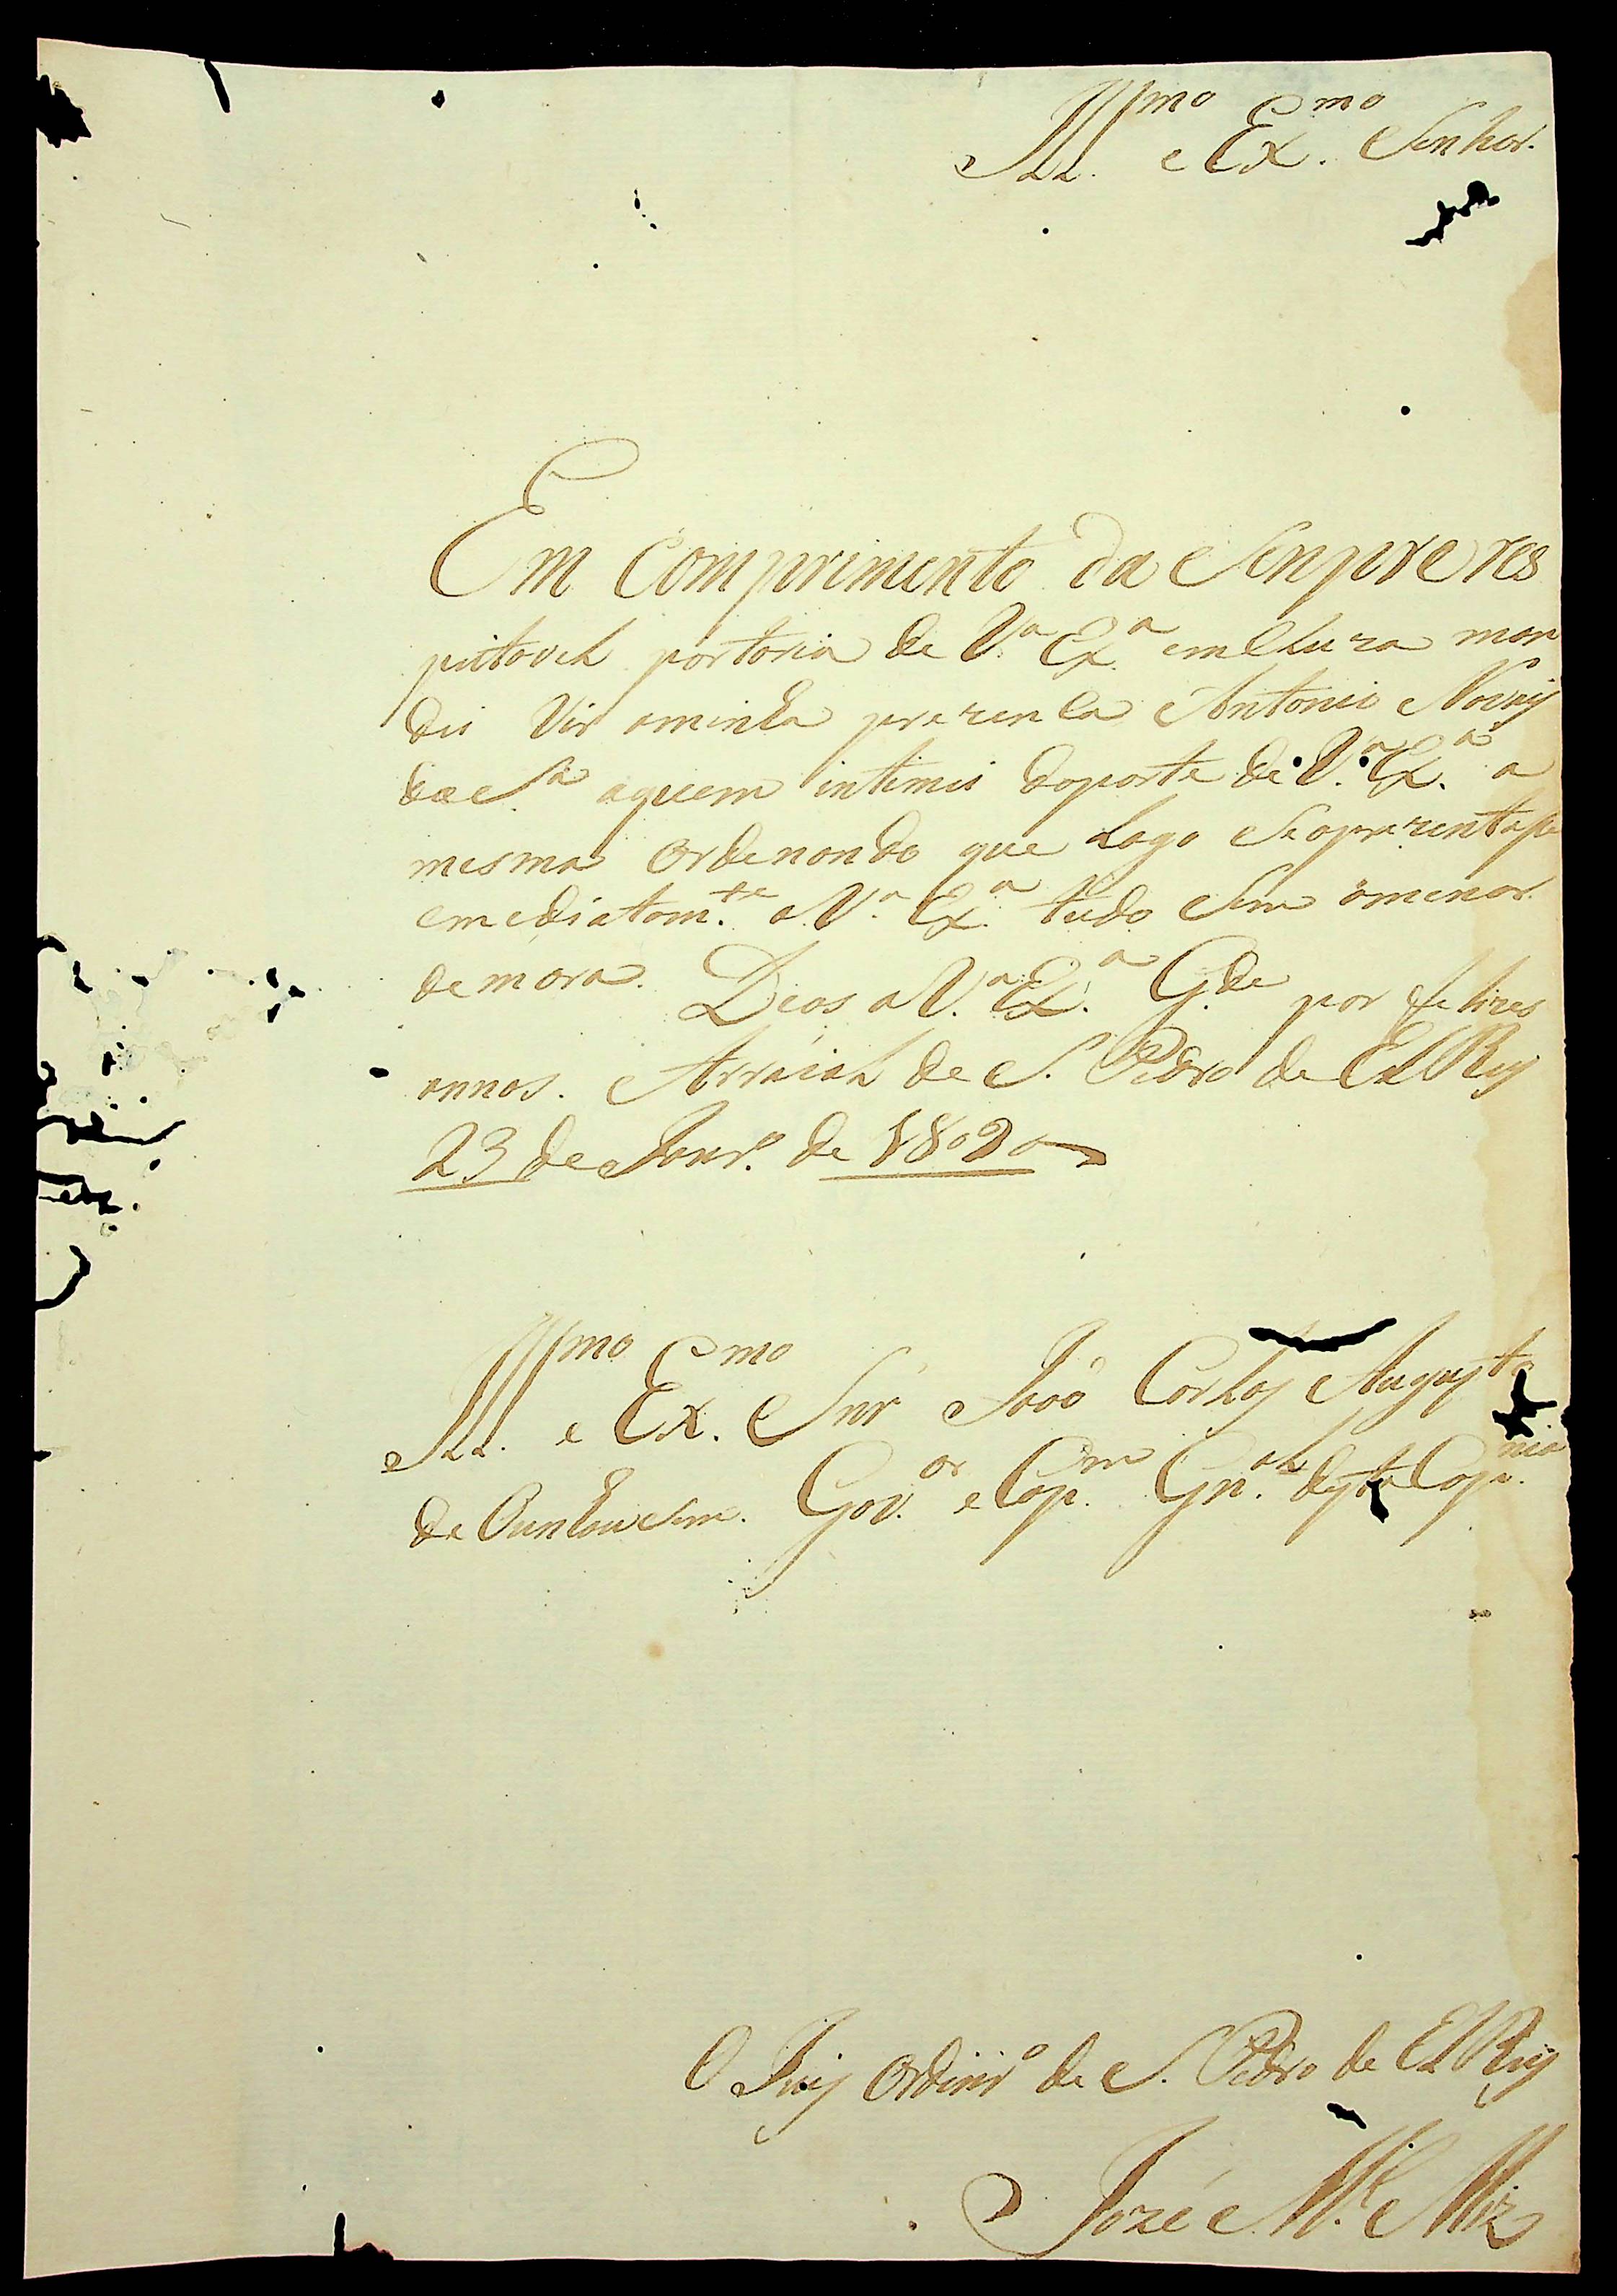 Ill.mo e Ex.mo Senhor.
Em Comprimento da Senpre res
pitavel portaria de V.a Ex.a em
dei Vir aminha prezenca Antonio Novais
da S.a aquem intimei daparte de V.a Ex.a a
mesma ordenando que Logo Seaprezentaße
emediatam.te a V.a Ex.a tudo Sem omenor
demora. Deos a V.a Ex.a G.de por felizes
annos. Arraial de S. Pedro de El Rey
23 de Janr.o de 1809
Ill.mo e Ex.mo Snr' Joaõ Carlos Augusto
de Oeynhausem. Gov.or e Cap.m Gn.al desta Cap.nia
O Juis Ordinr.o de S. Pedro de El Rey
Jozé M.el Miz